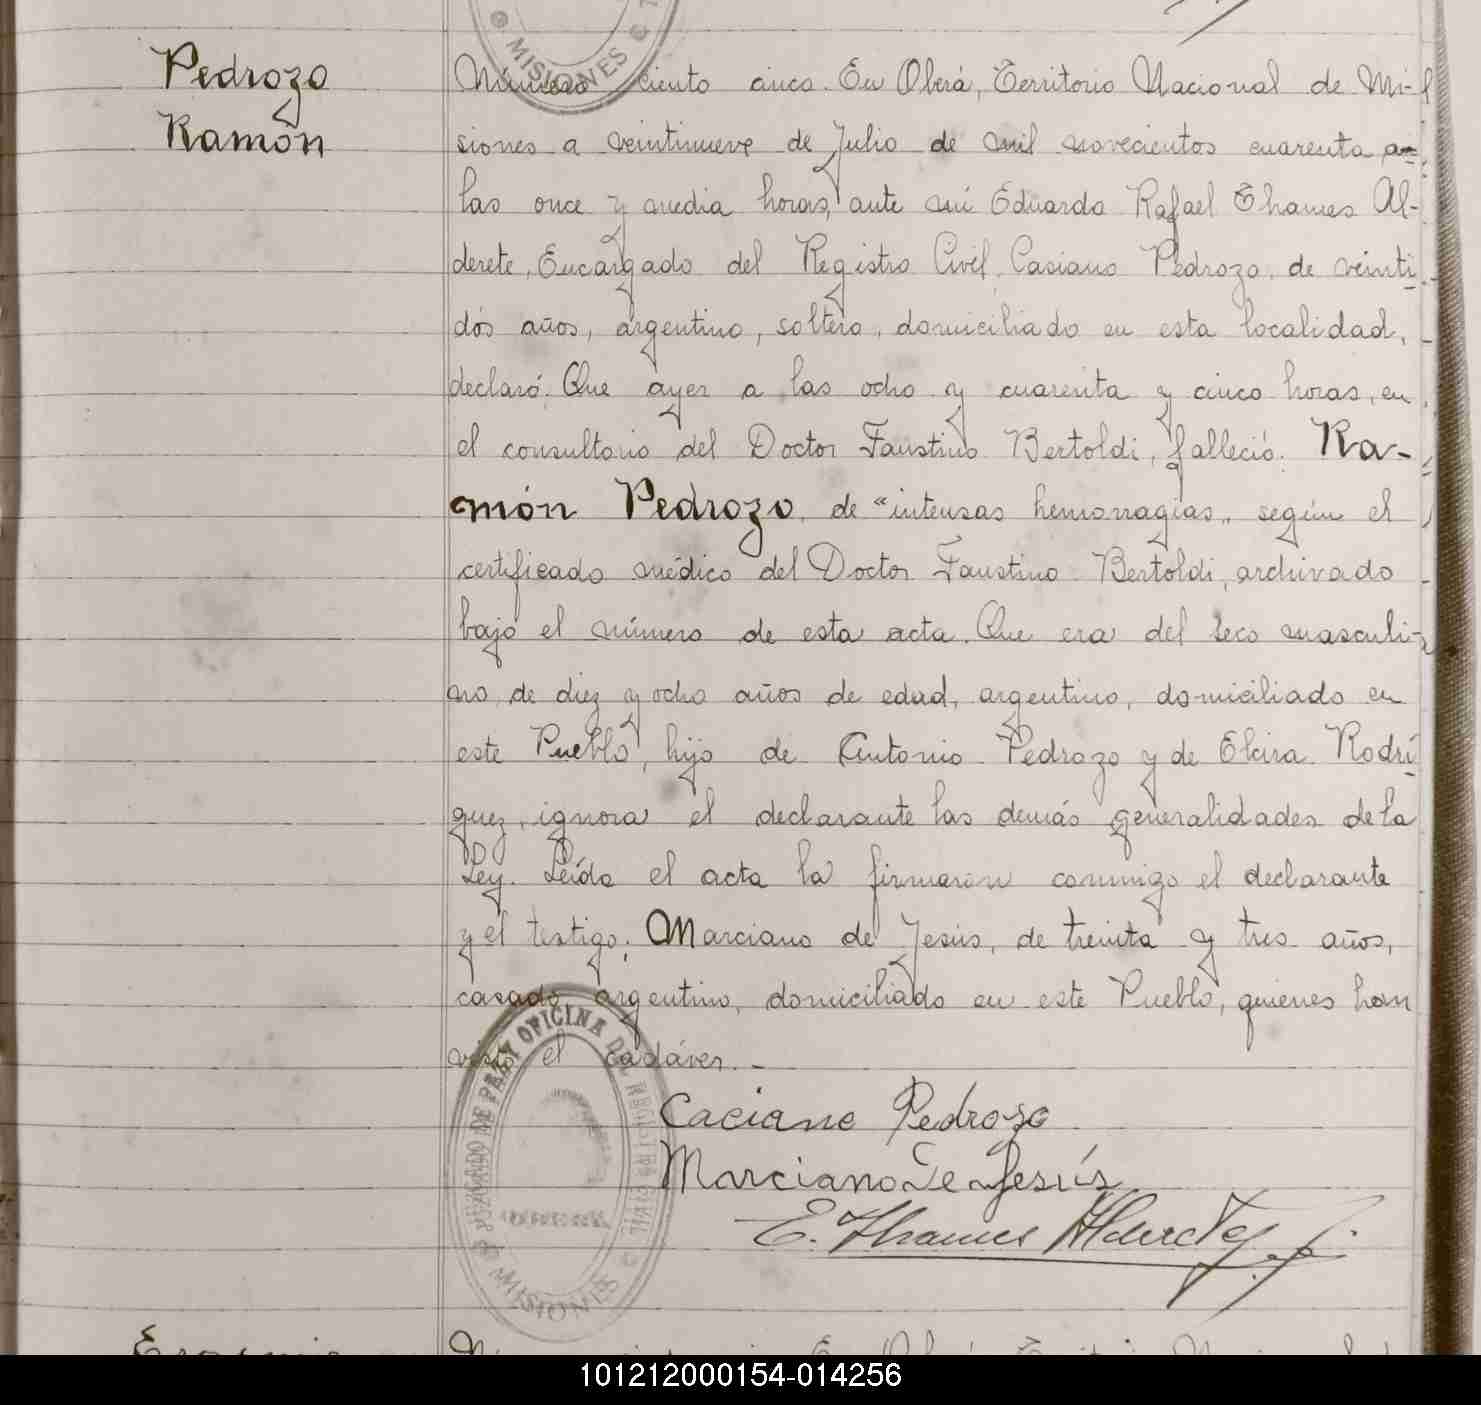 Pedrozo
Ramón
MISIONES
Número ciento cinco. En Oberá, Territorio Nacional de Mi-
siones a veintinueve de Julio de mil novecientos cuarenta a
las once y media horas, ante mí Eduardo Rafael Thames Al-
derete, Encargado del Registro Civil, Casiano Pedrozo, de veinti
dós años, argentino, soltero, domiciliado en esta localidad,
declaró: Que ayer a las ocho y cuarenta y cinco horas, en
el consultorio del Doctor Faustino Bertoldi, falleció: Ra-
món Pedrozo, de "intensas hemorragias„ según el
certificado médico del Doctor Faustino Bertoldi, archivado
bajo el número de esta acta. Que era del seco masculi-
no, de diez y ocho años de edad, argentino, domiciliado en
este Pueblo, hijo de Antonio Pedrozo y de Elcira Rodrí
guez, ignora el declarante las demás generalidades de la
Ley. Leída el acta la firmaron conmigo el declarante
y el testigo: Marciano de Jesús, de treinta y tres años,
casado, argentino, domiciliado en este Pueblo, quienes han
visto el cadáver.-
JUZGADO DE PAZ Y OFICINA DEL REGISTRO CIVIL
MISIONES
Caciano Pedrozo
Marciano De Jesús
E. Thames Alderete
101212000154-014256